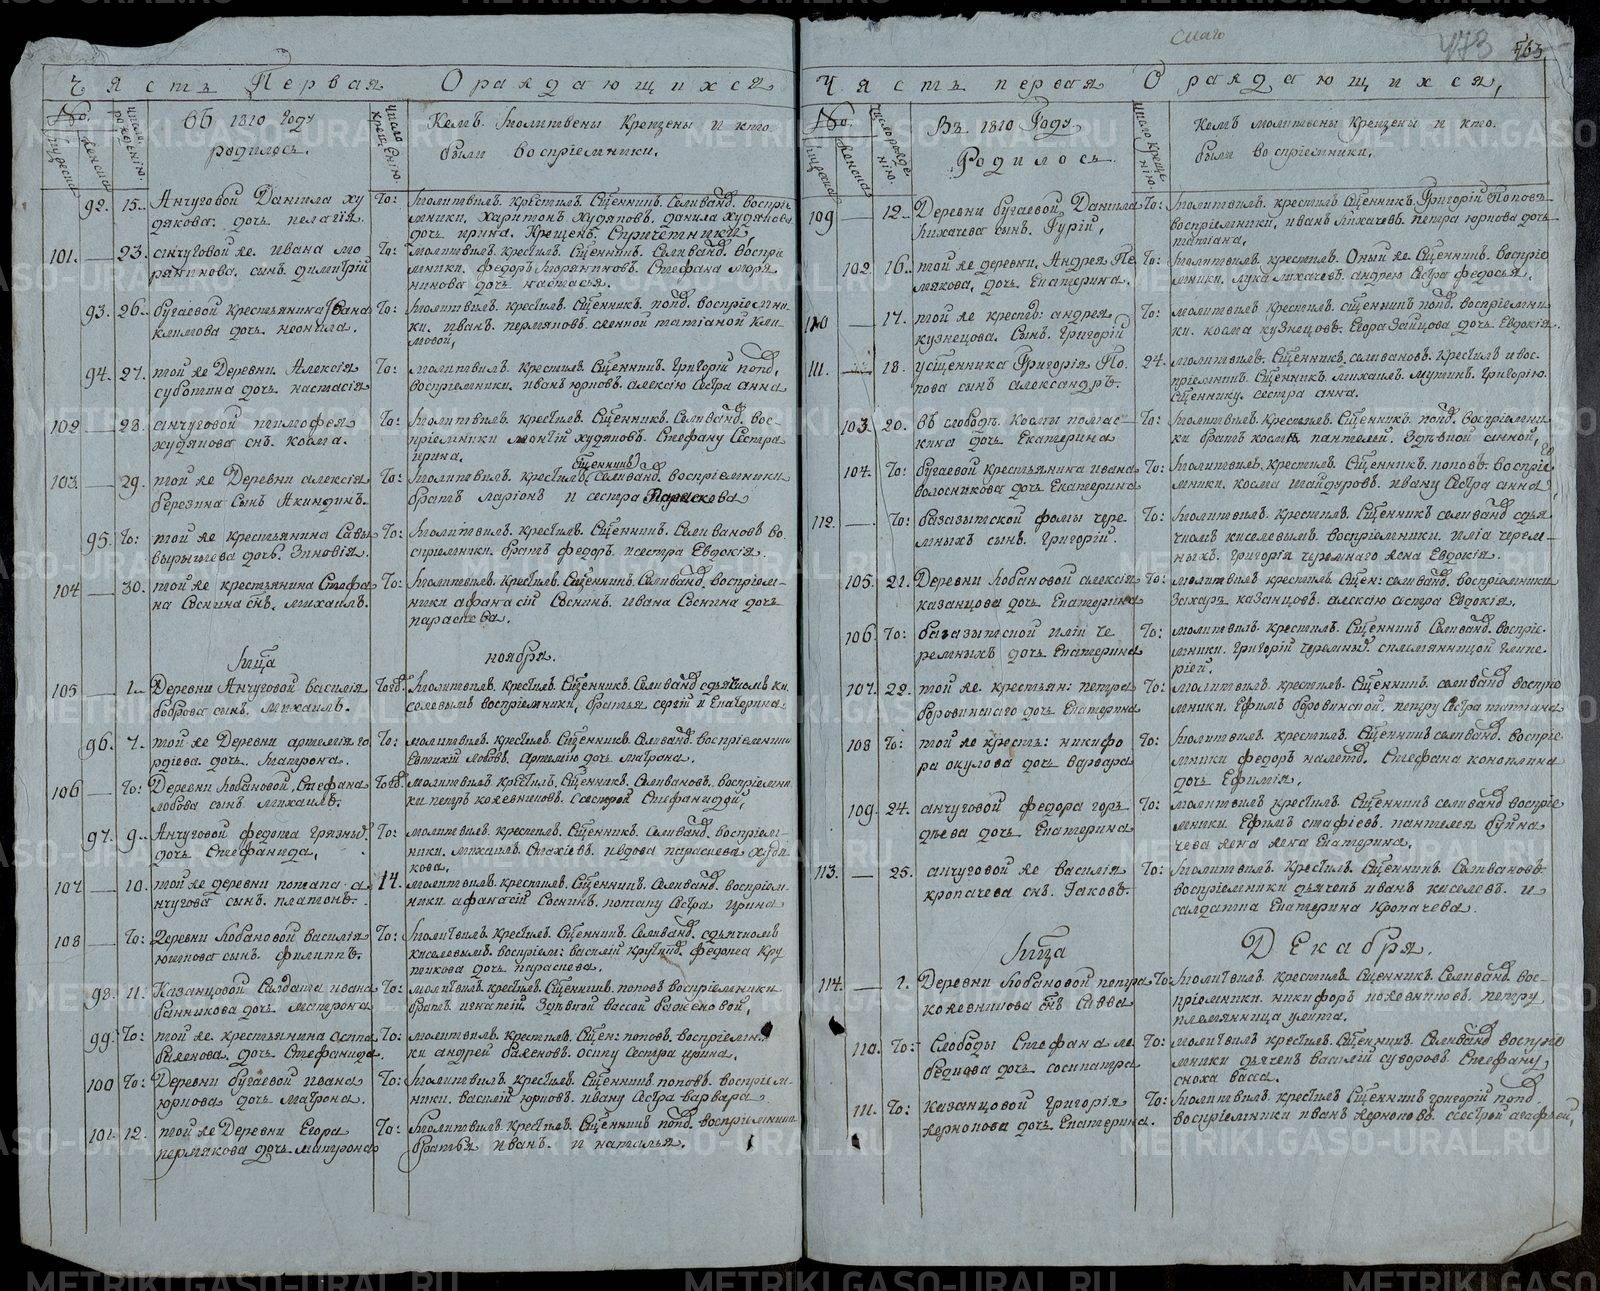 Часть Первая О раждающихся
No.
мужеска
женска
число рожденію.
въ 1810 Году
родилось.
число крещенію.
Кемъ молитвены Крещены и кто
были воспріемники.
92. 15. Анчуговой Данила ху
дякова. дочь пелагія.
То: молитвилъ. крестилъ. Сщенникъ. Селиванд. воспріе
мники. Харитонъ Худяковъ. данила худякова
дочь ирина. Крещенъ. Спричетники.
101. 23. анчуговой же. ивана мо
рянинова. сынъ. димитрій
То: молитвилъ. крестилъ. Сщенникъ. Селиванд. воспріе
мники. федоръ моряниновъ. Стефана моря
нинова дочь настасья.
93. 26. бугаевой крестьянина Ивана
климова дочь. неонила.
То: молитвилъ. крестилъ. Сщенникъ. попд. воспріемни
ки. иванъ. пермяковъ. с женой татіаной кли
мовой,
94. 27. той же Деревни Алексія
субботина дочь настасія
То: молитвилъ. крестилъ Сщенникъ. Григорій попд,
воспріемники. иванъ юрновъ. алексію сестра анна
102 28. анчуговой тимофея
худякова снъ. козма.
То: молитвилъ. крестилъ. Сщенникъ. Селиванд. вос-
пріемники мокій худяковъ. Стефану Сестра
ирина.
103. 29. той же Деревни алексія
березина Сынъ Акиндинъ.
То: молитвилъ. крестилъ. Сщенникъ Селиванд. воспріемники
братъ ларіонъ и сестра Параскева
95. То: той же крестьянина Савы
вырышева дочь. Зиновія.
То: молитвилъ. крестилъ. Сщенникъ. Селивановъ во
спріемники. братъ федоръ. и сестра Евдокія.
104 30. той же крестьянина Стефа
на Соснина снъ. михаилъ.
То: молитвилъ. крестилъ. Сщенникъ. Селиванд. воспріем-
ники афанасій Соснинъ. ивана Соснина дочь
параскева.
мца ноября.
105 1. Деревни Анчуговой василія
боброва сынъ. михаилъ.
Тогд. молитвилъ. крестилъ. Сщенникъ. Селиванд с дьячкомъ ки
селевымъ воспріемники, братья сергій и Екатерина.
96. 7. той же Деревни артемія го
рдіева. дочь. матрона.
То: молитвилъ. крестилъ. Сщенникъ. Селиванд. воспріемники
Евтихій лобовъ. Артемію дочь матрона.
106 То: Деревни Кобановой. Стефана
лобова сынъ михаилъ.
Тогд. молитвилъ. крестилъ. Сщенникъ. Селивановъ. воспріемни
ки петръ кожевниковъ. с сестрой Стефанидой,
97. 9. Анчуговой федота Грязныд.
дочь. Стефанида.
То: молитвилъ. крестилъ. Сщенникъ. Селиванд. воспріем-
ники. михаилъ. Стахіевъ. и вдова параскева худя
кова.
107 10. той же деревни потапа а
нчугова сынъ. платонъ.
14. молитвилъ. крестилъ. Сщенникъ. Селиванд. воспріем-
ники афанасій Соснинъ. потапу Сестра ирина
108 То: Деревни Кобановой василія
сынъ. филиппъ.
То: молитвилъ. крестилъ. Сщенникъ. Селиванд. с дьячкомъ
киселевымъ. воспріем: василій федота Кру
тикова дочь параскева.
98. 11. Казанцовой Салдата ивана
банникова дочь. матрона
То: молитвилъ. крестилъ. Сщенникъ. поповъ воспріемники
братъ. игнатій. Здѣвкой вассой баженовой,
99. То: той же. крестьянина осипа
баженова. дочь. Стефанида.
То: молитвилъ. крестилъ. Сщен: поповъ. воспріемни
ки андрей баженовъ. осипу Сестра ирина.
100 То: Деревни бугаевой ивана
юрнова дочь матрона.
То: молитвилъ. крестилъ. Сщенникъ поповъ. воспріем-
ники. василій юрновъ. ивану Сестра варвара.
101. 12. той же Деревни Егора
пермякова дочь. матрона
То: молитвилъ. крестилъ. Сщенникъ попд. воспріемники
братья иванъ. и наталья.
473
763
Часть первая О раждающихся,
No.
мужеска
женска
число рожденію.
Въ 1810 Году
Родилось
число крещенію.
Кемъ молитвены Крещены и кто.
были воспріемники.
109 12. Деревни бугаевой Данила
лихачева сынъ. Гурій,
То: молитвилъ. крестилъ Сщенникъ. Григорій Поповъ
воспріемники, иванъ лихачевъ. петра юрнова дочь
татіана.
102 16. той же деревни. Андрея Пе
рмякова, дочь. Екатерина.
То: молитвилъ. крестилъ. Оный же. Сщенникъ. воспріе
мники. лука лихачевъ. андрею Сестра федосья.
110 17. той же крестд: андрея
кузнецова. Сынъ. Григорій
То: молитвилъ. крестилъ. сщенникъ попд. воспріемни
ки. козма кузнецовъ. Егора Зайцова дочь Евдокія.
111. 18. усщенника Григорія По
пова снъ александръ.
24. молитвилъ. Сщенникъ. селивановъ. Крестилъ и вос-
пріемникъ. Сщенникъ. михаилъ. мутинъ. Григорію.
Сщеннику. сестра анна.
103. 20. въ слободѣ Козмы полас-
кина дочь Екатерина
То: молитвилъ. крестилъ. Сщенникъ. попд. воспріемни
ки братъ козмы. пантелей. Здѣвкой анной,
104. То: бугаевой крестьянина ивана
волосникова дочь Екатерина
То: молитвилъ. крестилъ. Сщенникъ. поповъ. воспріе
мники. козма шайдуровъ. ивану Сестра анна
112. То: фомы чере-
мныхъ сынъ. Григорій.
То: молитвилъ. крестилъ. Сщенникъ селиванд с дья
чкомъ киселевымъ. воспріемники. илія черем-
ныхъ. григорія черемнаго жена Евдокія.
105. 21. Деревни Кобановой алексія
казанцова дочь Екатерина
То: молитвилъ крестилъ. Сщен: селиванд. воспріемники
Захаръ казанцовъ. алексію сестра Евдокія.
106 То: иліи че
ремныхъ дочь Екатерина
То: молитвилъ. крестилъ. Сщенникъ Селиванд. воспріе-
мники. григорій черемныд. с племянницой глике
ріей.
107. 22. той же. крестьян: петра
боровинскаго дочь Екатерина
То: молитвилъ. крестилъ. Сщенникъ. селиванд воспріе
мники. Ефимъ боровинской. петру Сестра татіана
108 То: той же крестъ: никифо
ра окулова дочь варвара
То: молитвилъ крестилъ. Сщенникъ селиванд. воспріе
мники федоръ налетд. Стефана коноплина
дочь Ефимія.
109. 24. анчуговой федора горъ
дѣева дочь Екатерина
То: молитвилъ. крестилъ. Сщенникъ селиванд воспріе
мники Ефимъ стафіевъ. пантелея буйна
чева жена Екатерина.
113. 25. анчуговой же василія
кропачева снъ. Іаковъ.
То: молитвилъ. крестилъ. Сщенникъ. Селивановъ.
воспріемники дьячекъ иванъ киселевъ. и
салдатка Екатерина Кропачева.
мца Декабря.
114. 1. Деревни Кобановой петра
кожевникова снъ Савва
То: молитвилъ. крестилъ. Сщенникъ. Селиванд. вос-
пріемники. никифоръ кожевниковъ. петру
племянница улита.
110. То: Слободы Стефана ле
бедкова дочь сосипатра
То: молитвилъ крестилъ. Сщенникъ. Селиванд воспріе
мники дьячекъ василій суворовъ. Стефану
сноха васса.
111. То: Казанцовой Григорія
жернокова дочь Екатерина.
То: молитвилъ. крестилъ Сщенникъ григорій попд.
воспріемники иванъ жерноковъ. с сестрой агафьей,
METRIKI.GASO-URAL.RU